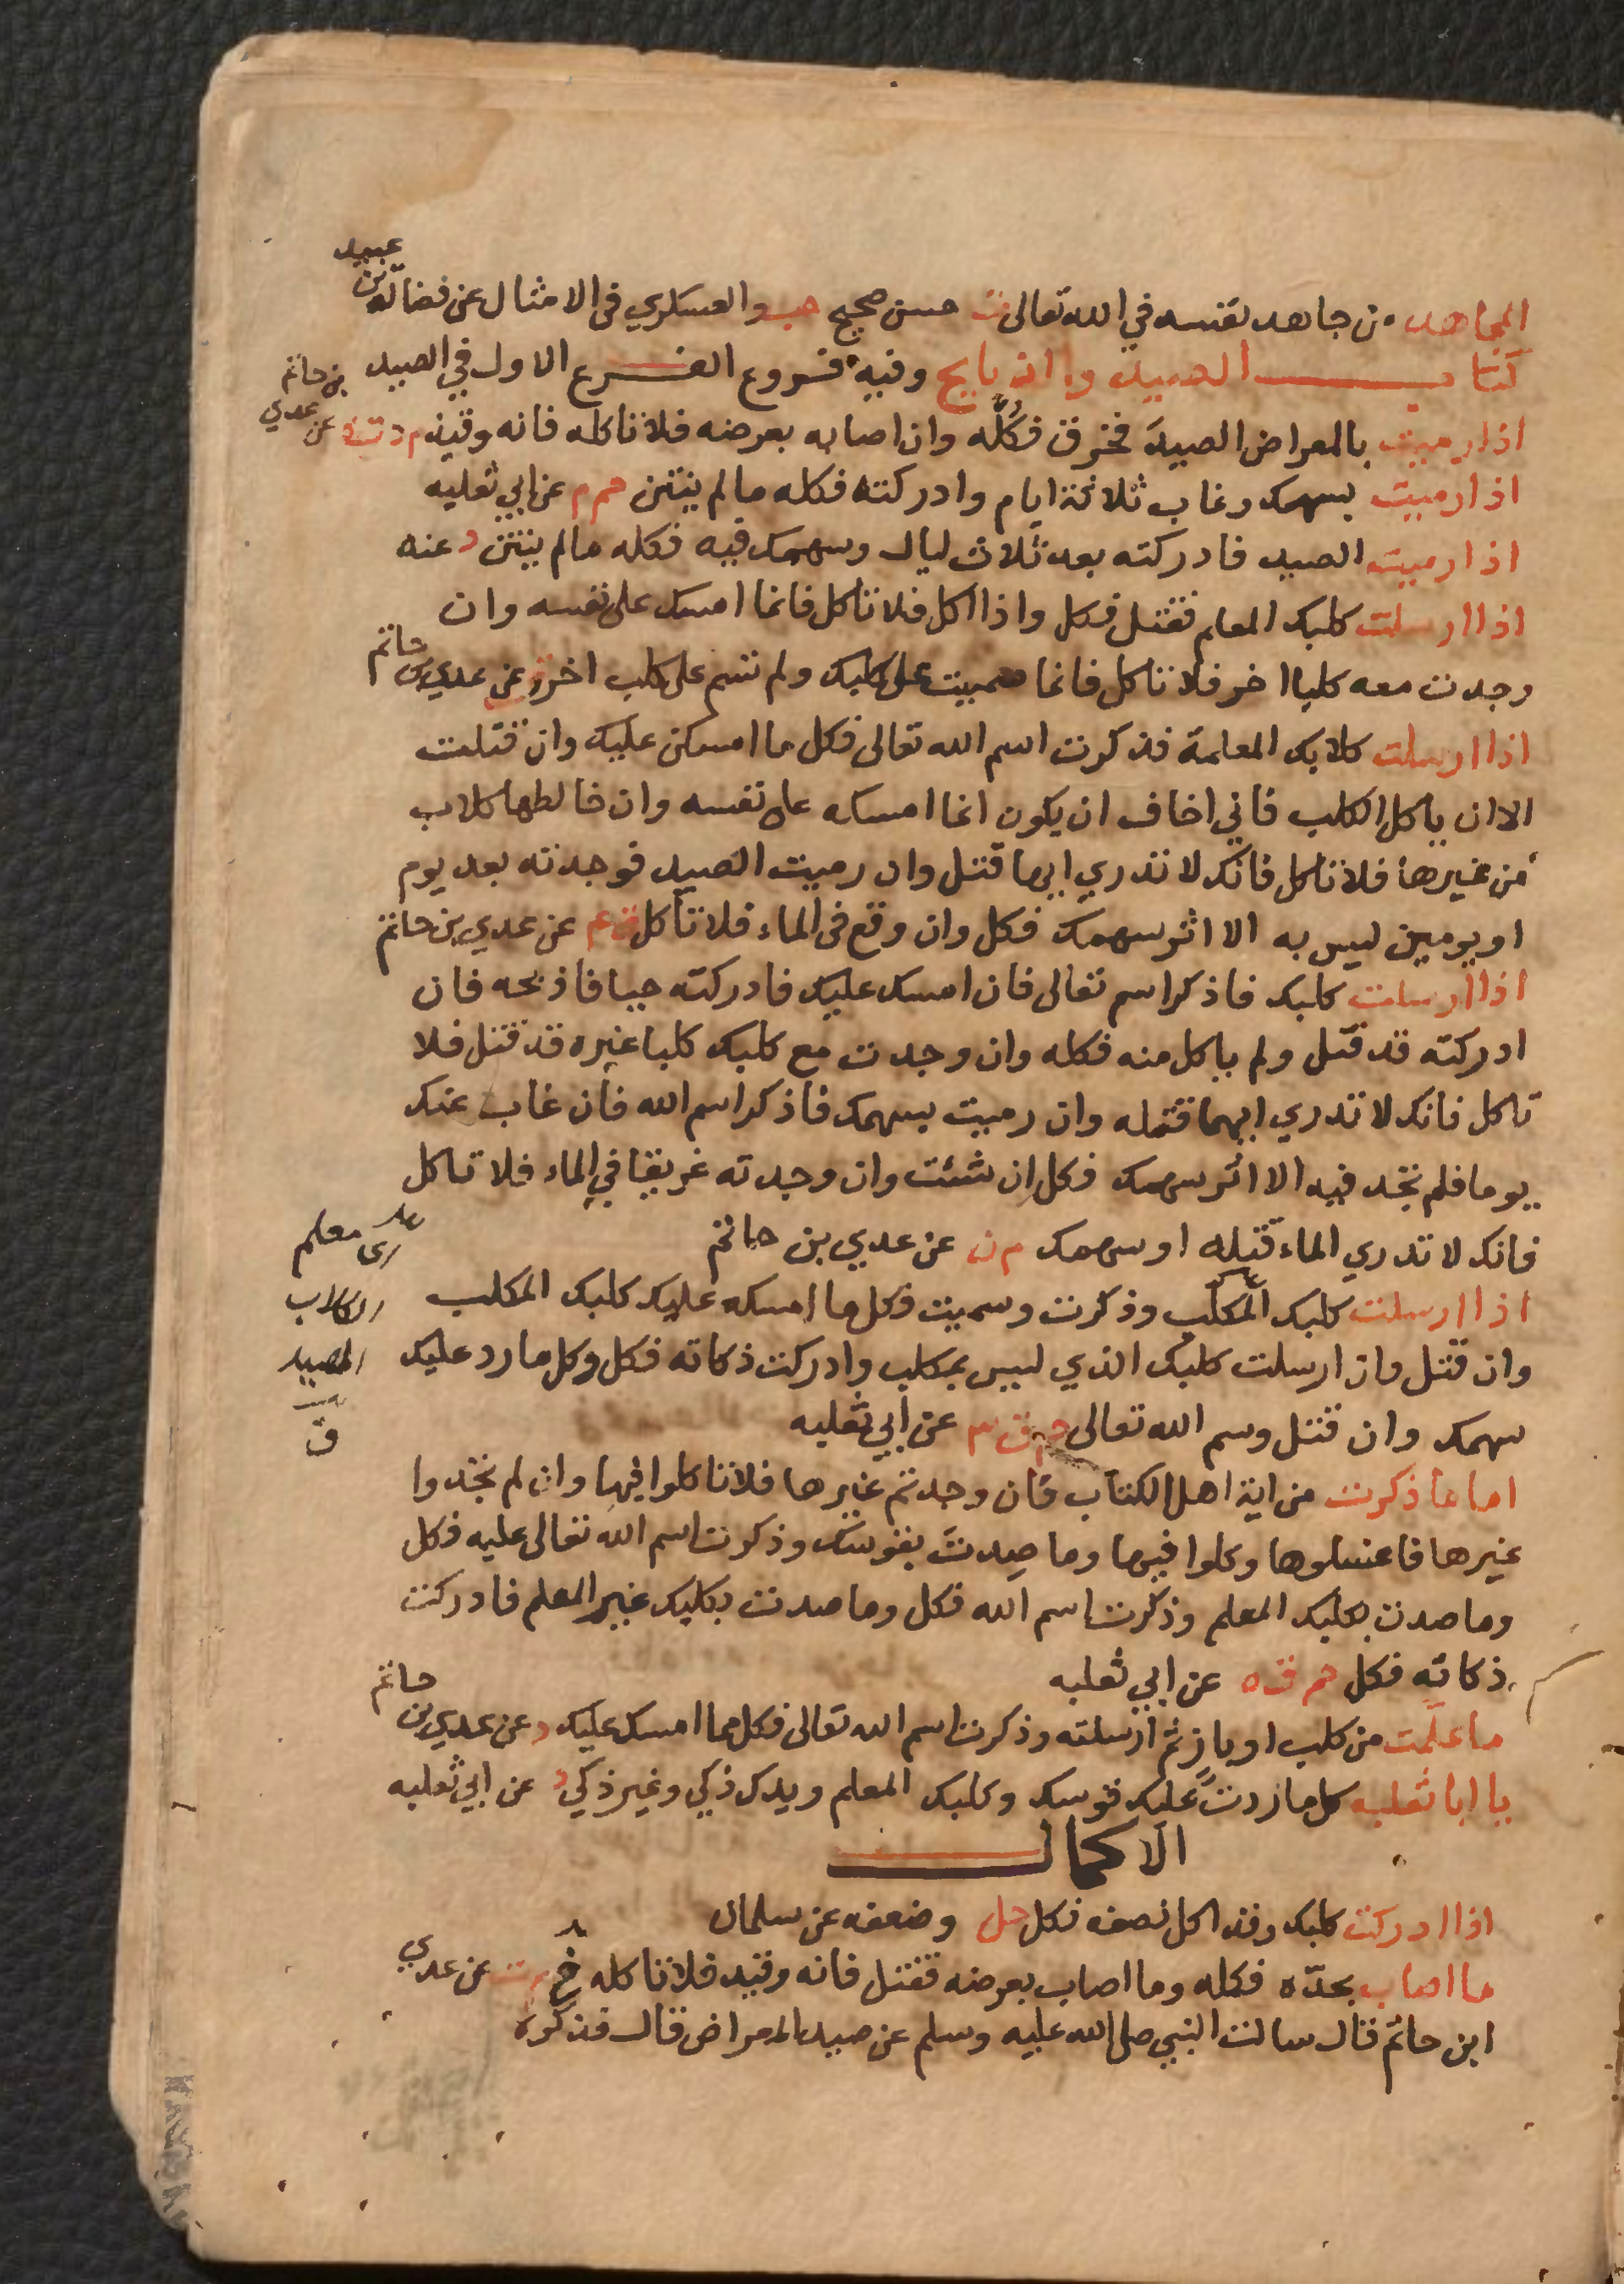 المجاهد من جاهد نفسه في الله تعالى ت حسن صحيح حب والعسكري في الامثال عن فضالة بن عبيد
كتاب الصيد والذبايح وفيه فروع الفرع الاول في الصيد
اذا رميت بالمعراض الصيد فخزق فكله وان اصابه بعرضه فلا تاكله فانه وقيذ م د ت ه عن عدي بن حاتم
اذا رميت بسهمك وغاب ثلاثة ايام وادركته فكله ما لم ينتن حم م عن ابي ثعلبه
اذا رميت الصيد فادركته بعد ثلاث ليال وسهمك فيه فكله ما لم ينتن د عنه
اذا ارسلت كلبك المعلم فقتل فكل واذا اكل فلا تاكل فانما امسك على نفسه وان
وجدت معه كلبا اخر فلا تاكل فانما سميت على كلبك ولم تسم على كلب اخر ق عن عدي بن حاتم
اذا ارسلت كلابك المعلمة فذكرت اسم الله تعالى فكل ما امسكن عليك وان قتلت
الا ان ياكل الكلب فاني اخاف ان يكون انما امسكه على نفسه وان خالطها كلاب
من غيرها فلا تاكل فانك لا تدري ايها قتل وان رميت الصيد فوجدته بعد يوم
او يومين ليس به الا اثر سهمك فكل وان وقع في الماء فلا تاكل عن عدي بن حاتم
اذا ارسلت كلبك فاذكر اسم تعالى فان امسك عليك فادركته حيا فاذبحه فان
ادركته قد قتل ولم ياكل منه فكله وان وجدت مع كلبك كلبا غيره قد قتل فلا
تاكل فانك لا تدري ايهما قتله وان رميت بسهمك فاذكر اسم الله فان غاب عنك
يوما فلم تجد فيه الا اثر سهمك فكل ان شئت وان وجدته غريقا في الماء فلا تاكل
فانك لا تدري الماء قتله او سهمك م ن عن عدي بن حاتم
اذا ارسلت كلبك المكلّب وذكرت وسميت فكل ما امسكه عليك كلبك المكلب
اي معلم
الكلاب
الصيد
ق
وان قتل وان ارسلت كلبك الذي ليس بمكلب وادركت ذكاته فكل وكل ما رد عليك
سهمك وان قتل وسم الله تعالى حم ق عن ابي ثعلبه
اما ما ذكرت من انية اهل الكتاب فان وجدتم غيرها فلا تاكلوا فيها وان لم تجدوا
غيرها فاغسلوها وكلوا فيها وما صدت بقوسك وذكرت اسم الله تعالى عليه فكل
وما صدت بكلبك المعلم وذكرت اسم الله فكل وما صدت بكلبك غير المعلم فادركت
ذكاته فكل حم ق ه عن ابي ثعلبه
ما علّمت من كلب او باز ثم ارسلته وذكرت اسم الله تعالى فكل مما امسك عليك د عن عدي بن حاتم
يا ابا ثعلبه كل ما ردت عليك قوسك وكلبك المعلم ويدك ذكي وغير ذكي د عن ابي ثعلبه
الاكمال
اذا ادركت كلبك وقد اكل نصفه فكل حل وضعفه عن سلمان
ما اصاب بحدّه فكله وما اصاب بعرضه فقتل فانه وقيذ فلا تاكله خ م ت عن عدي
ابن حاتم قال سالت النبي صلى الله عليه وسلم عن صيد المعراض قال فذكره